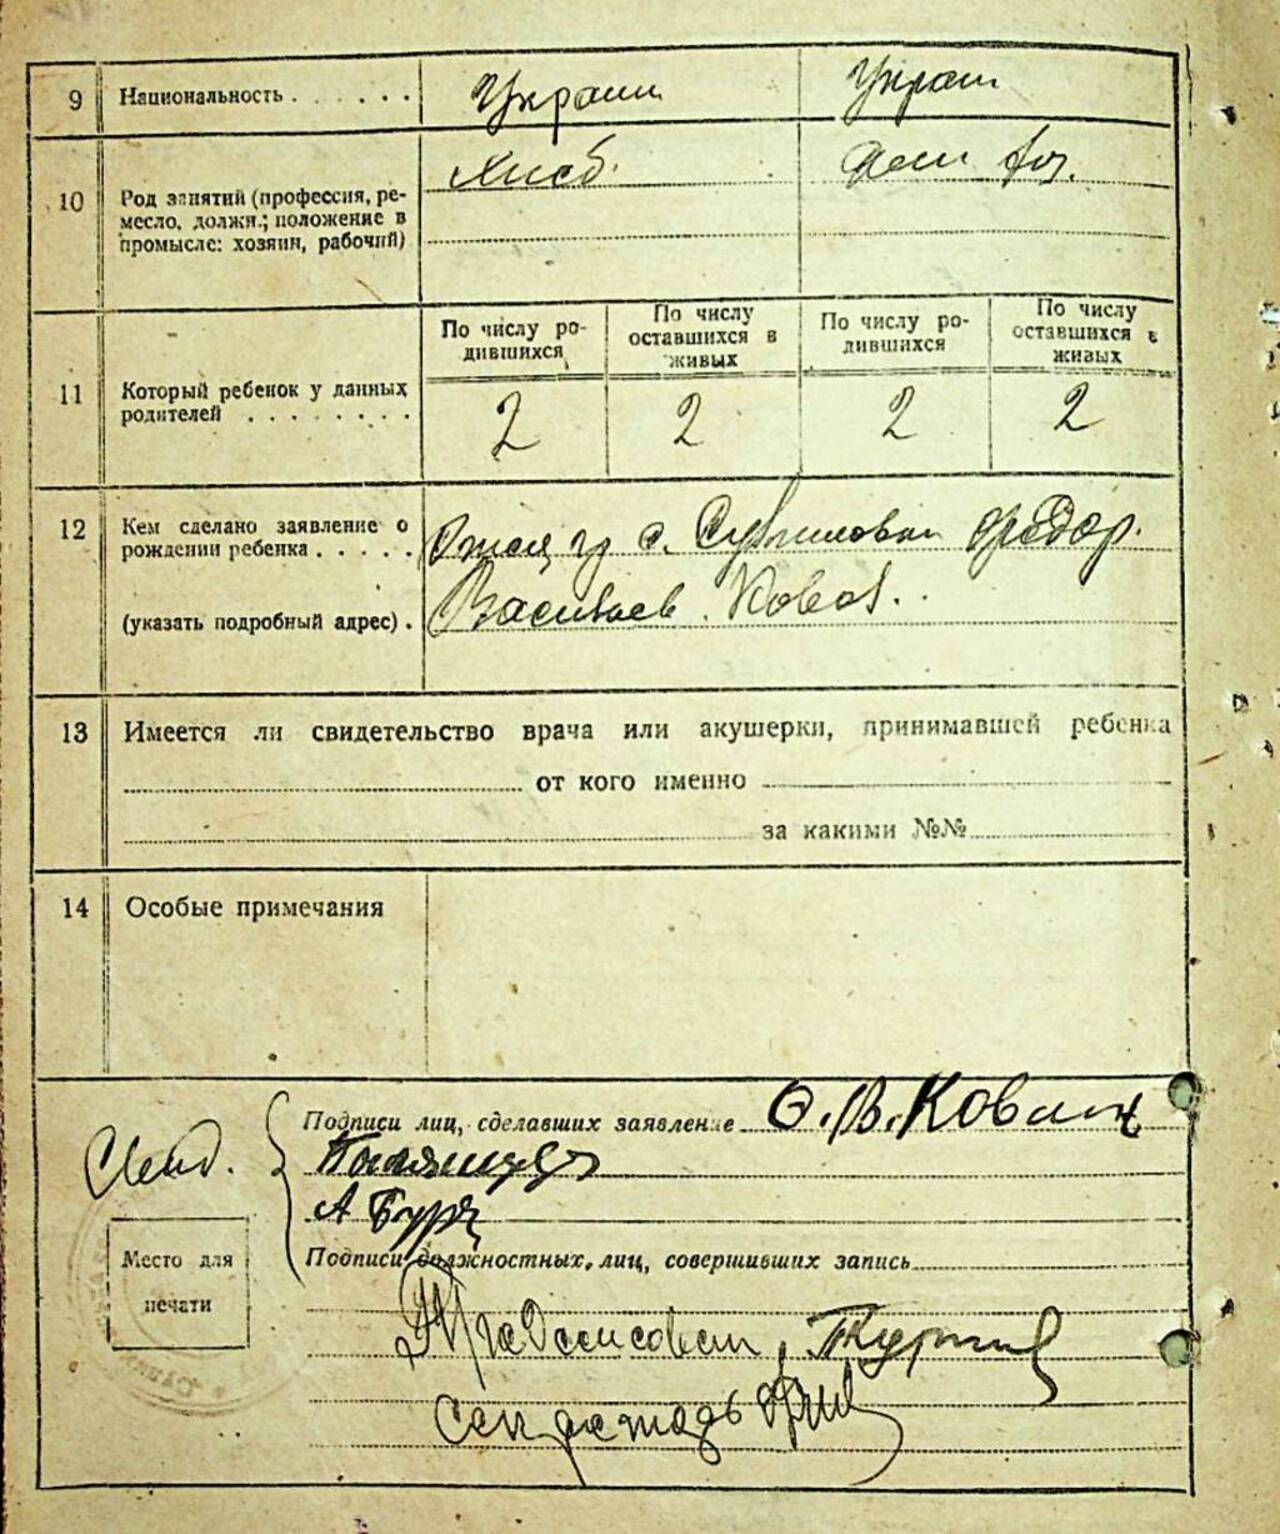 9 Национальность . . . . . . Украин Украин
10 Род занятий (профессия, ре-
месло, должн.; положение в
промысле: хозяин, рабочий)
Хлеб. дом хоз.
По числу ро-
дившихся
По числу
оставшихся в
живых
По числу ро-
дившихся
По числу
оставшихся в
живых
11 Который ребенок у данных
родителей . . . . . . . .
2 2 2 2
12 Кем сделано заявление о
рождении ребенка . . . . .
(указать подробный адрес) .
Отец гр с. Федор.
Васильев. Ковал.
13 Имеется ли свидетельство врача или акушерки, принимавшей ребенка
от кого именно
за какими №№
14 Особые примечания
Подписи лиц, сделавших заявление Ф. В. Ковал
Свид.
А Бурц
Место для
печати
Подписи должностных лиц, совершивших запись
секретарь